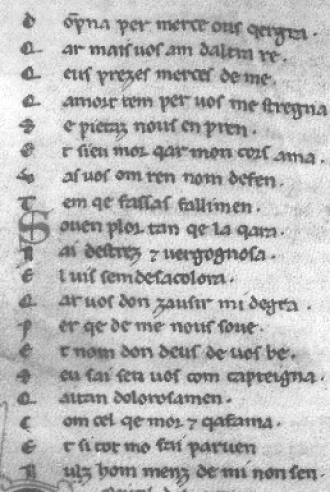 D opna per merce ous qergra.
Q ar mais vos am daltra re.
Q eus prezes merces de me.
Q amort tem per vos me stregna
S e pietaz nous en pren.
E t sieu mor qar mon cors ama.
V as vos om ren nom defen.
T em qe fassas fallimen.
S oven plor tan qe la qara.
N ai destrez ⁊ vergognosa.
E l vis sem desacolora.
Q ar vos don zausir mi degra.
P er qe de me nous sove.
E t nom don deus de vos be.
S eu sai seu vos com capteigna.
Q aitan dolorosamen.
C om cel qe mor ⁊ qafama.
E t si tot mo fai parven
N ulz hom menz de mi non sen.